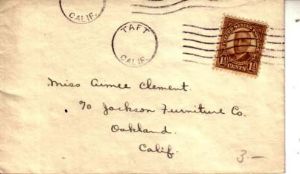 TAFT
CALIF.
CALIF.
1½ CENTS 1½
Miss Aimee Clement.
℅ Jackson Furniture Co.
Oakland.
Calif.
3-